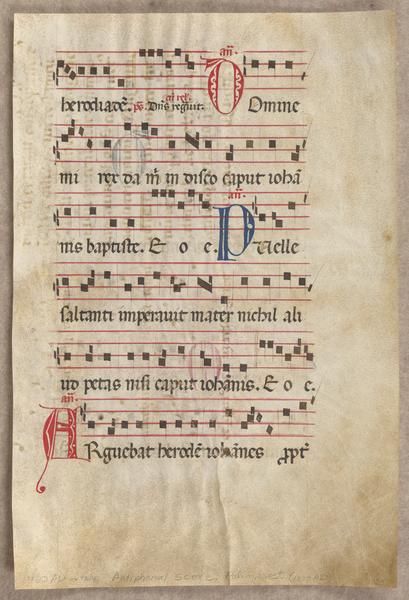 an̄.
herodiadē. ps. Dn̄s reguit. DOmine
mi rex da m̄ in disco caput iohā
an̄.
nis baptiste. E o e. PUelle
saltanti imperauit mater nichil ali
ud petas nisi caput iohānis. E o e.
an̄.
ARguebat herodē iohānes ꝓpt̄
Antiphonal Score,